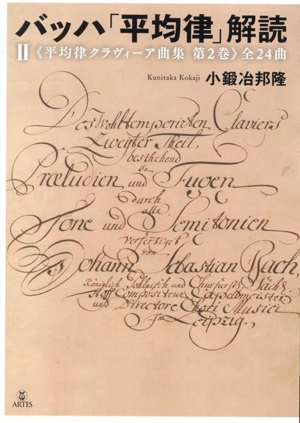 バッハ「平均律」解読
II《平均律クラヴィーア曲集 第2巻》全24曲
Kunitaka Kokaji
小鍛冶邦隆
Des Wohltemperirten Claviers
Zweÿter Theil,
bestehend
in
Præludien und Fugen
durch
alle
Tone und Semitonien
verfertiget
von
Johann Sebastian Bach,
Königlich Pohlnisch und Churfürstl. Sächs.
Hoff Compositeur Capellmeister
und Directore Chori Musici
In Leipzig.
ARTES